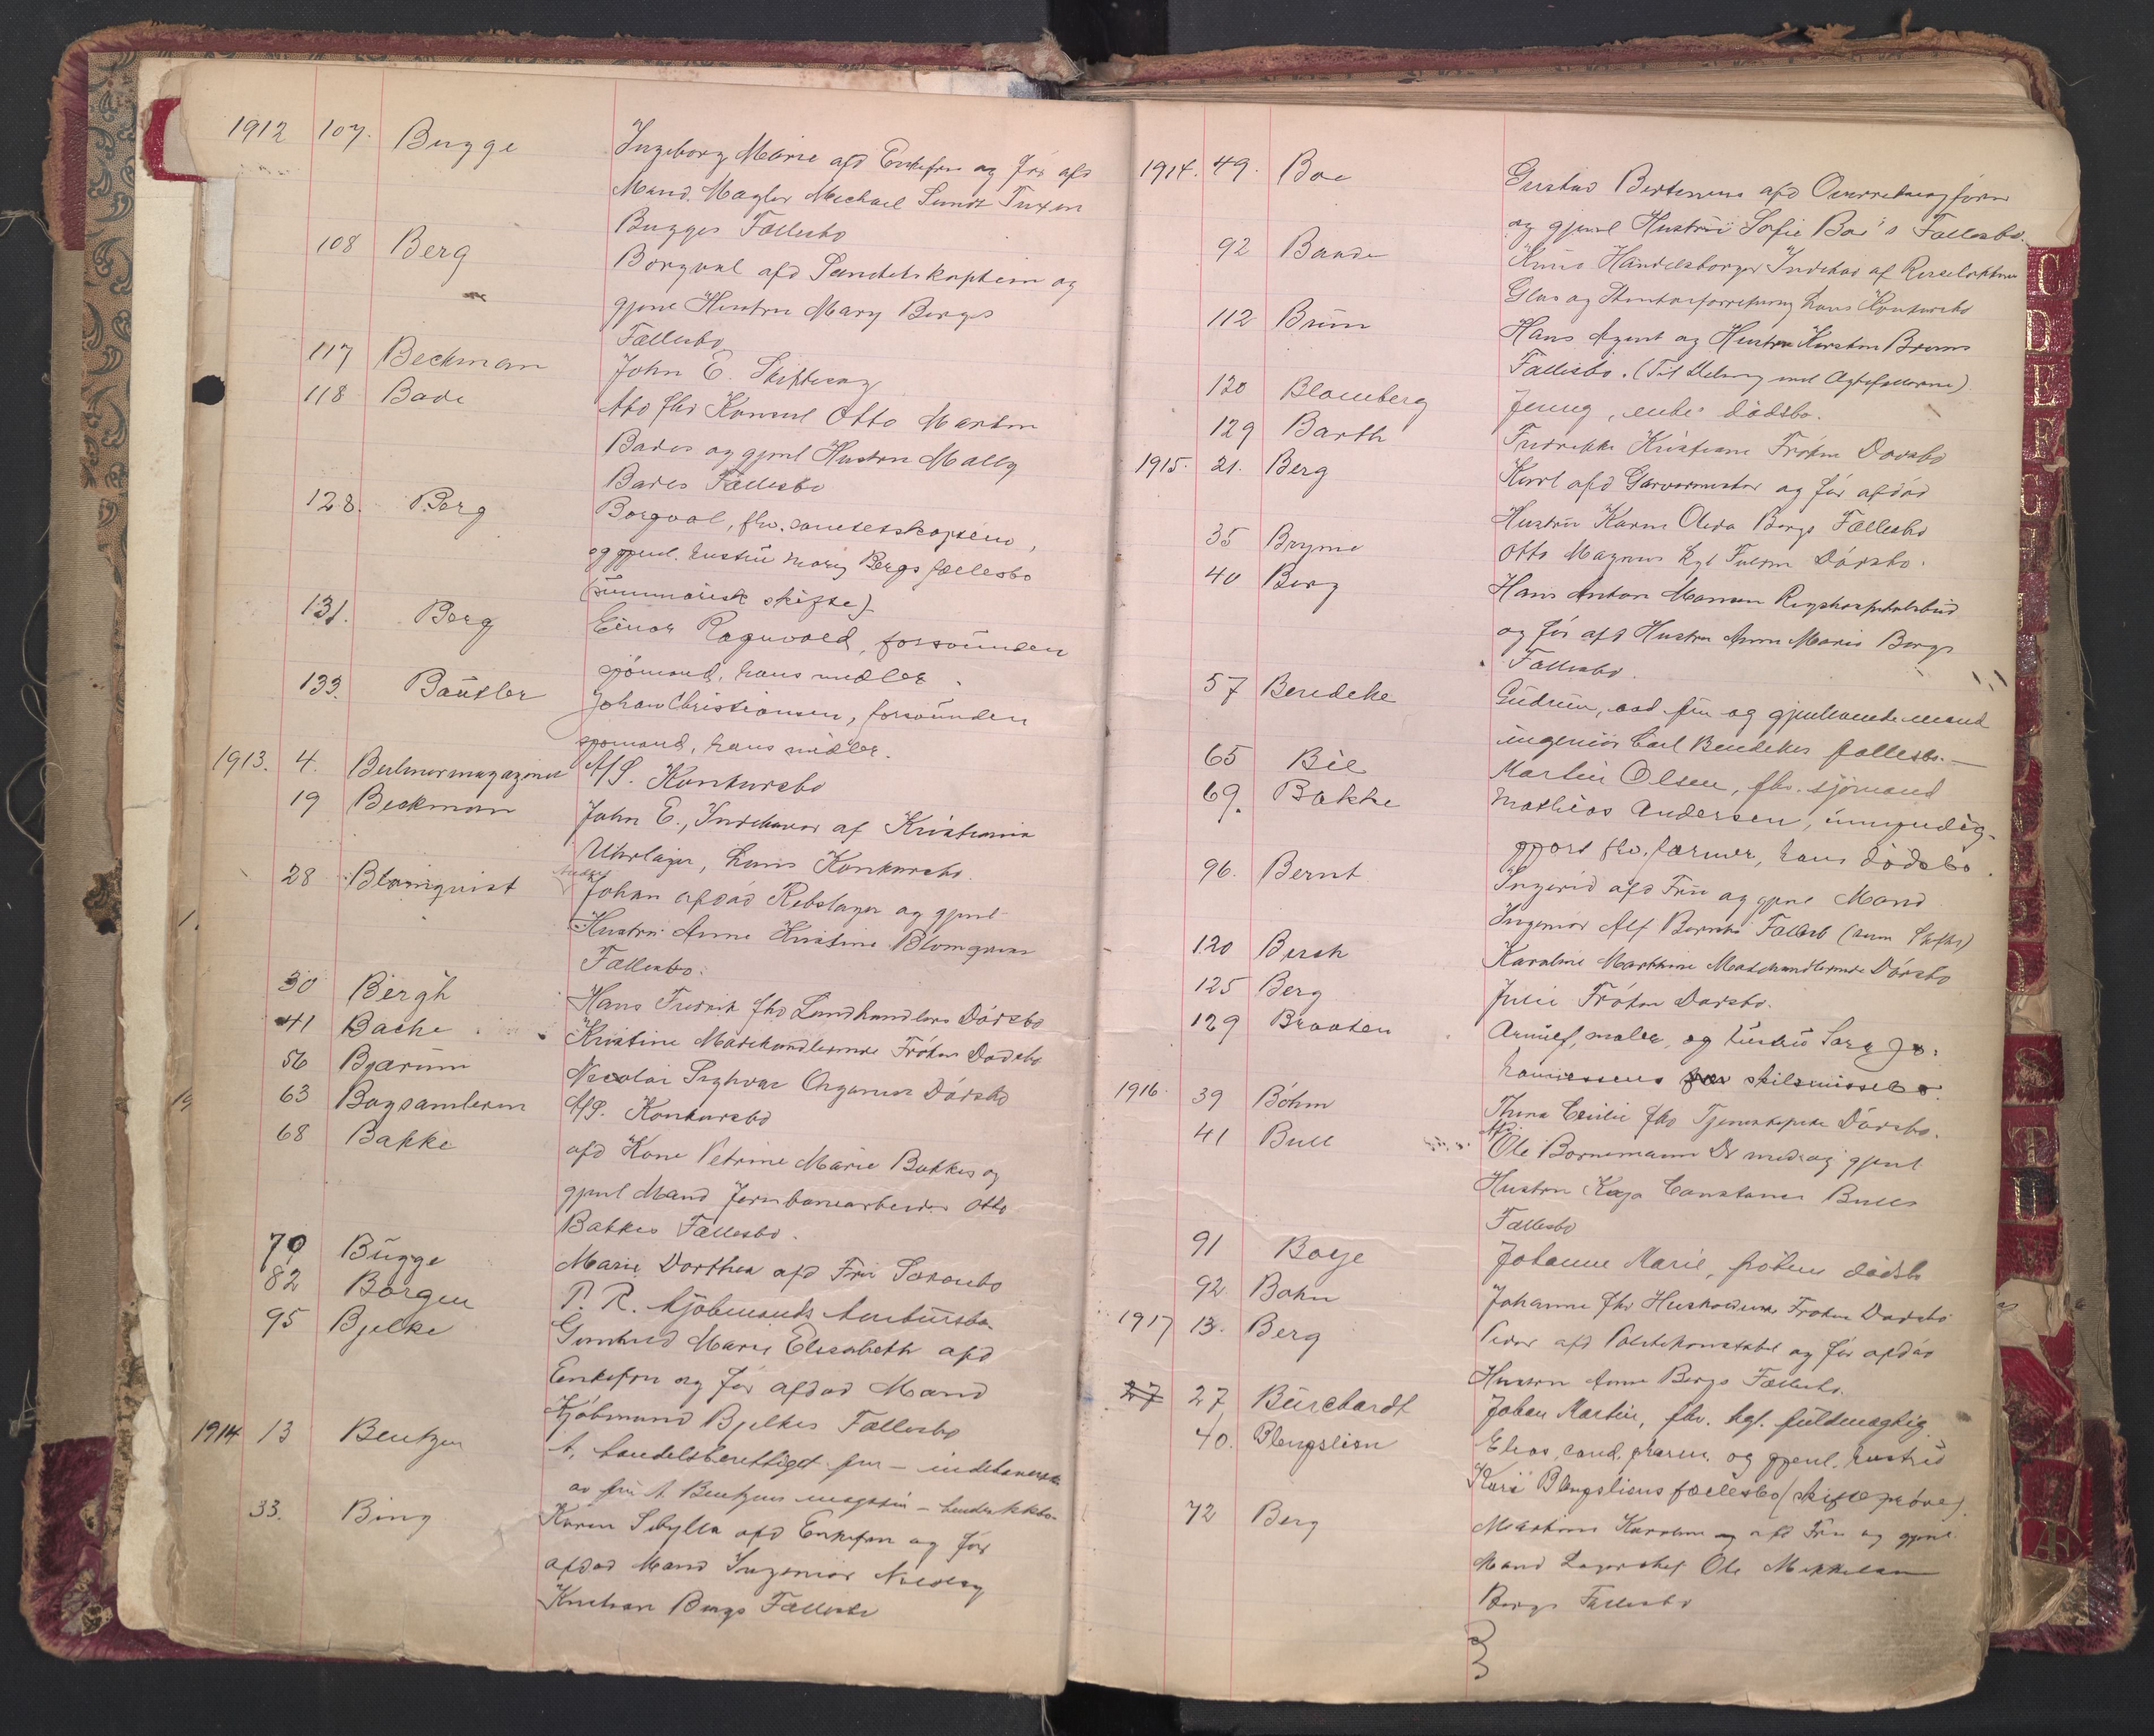 1912 107. Bugge Ingeborg Marie afd Enkefru og før afd
Mand Mægler Michael Sundt Tuxen
Bugges Fællesbo
108 Berg Borgval afd Sundetskaptein og
gjenl Hustru Mary Bergs
Fællesbo
117 Beckman John E.
118 Bade Abo fhv Konsul Otto Martin
Bades og gjenl Hustru Mally
Bades Fællesbo
128. Berg Borgval, fhv.
og gjenl. hustru Mary Bergs fællesbo
(summarisk skifte)
131. Berg Einar Ragnvald, forsvunden
sjömand, hans midler.
133. Bautler Johan Christiansen, forsvunden
sjømand, hans midler.
1913. 4. A/S. Konkursbo
19 Beckman John E., Indehaver af Kristiania
Uhrlager, hans Konkursbo.
28 Blomquist Johan afdød Rebslager og gjenl
Hustru Anne Kristine Blomquists
Fællesbo.
30 Bergh Hans Fredrik fhv Landhandlers Dødsbo
41 Bache Kristine Frøken Dødsbo
56 Bjarum Nicolai Sighvar Dødsbo
63 Bogsamleren A/S. Konkursbo
68 Bakke afd Kone Petrine Marie Bakkes og
gjenl Mand Jernbanearbeider Otto
Bakkes Fællesbo.
70 Bugge Marie Dorthea afd Fru
82 Borgen P. R. Kjøbmands
95 Bjelke Marie Elisabeth afd
Enkefru og før afdød Mand
Kjøbmand Bjelkes Fællesbo
1914 13 Bentzen A, handelsberettiget fru – indehaverske
av fru A Bentzens magasin – hendes kkbo.
33. Bing Karen Sibylla afd Enkefru og før
afdød Mand Ingeniør Nicolay
Kristian Bings Fællesbo
1914. 49. Boe Gustav Bertenius afd
og gjenl Hustru Sofie Boe's Fællesbo.
92 Baade Handelsborger Indehav af
Glas og hans Konkursbo
112 Brun Hans Agent og Hustru Kirsten Bruns
Fællesbo. (Til Deling med Ægtefællerne)
120 Blomberg Jenny, enke dødsbo.
129 Barth Fredrikke Kristiane Frøken Dødsbo
1915. 21. Berg Karl afd Garvermester og før afdød
Hustru Karen Olava Bergs Fællesbo
35 Bryme Otto Magnus Dødsbo.
40 Berg Hans Anton Rigshospitalsbud
og før afd Hustru Anne Marie Bergs
Fællesbo.
57 Bendeke Gudrun, avd. fru og gjenlevende mand
ingeniør Carl Bendekes fællesbo. —
65 Bie Martin Olsen, fhv. sjömand
69. Bakke Mathias Andersen, umyndig-
gjort fhv. farmer, hans dödsbo.
96. Bernt Ingerid afd Fru og gjenl Mand
Ingeniør Alf Bernts Fællesb (sum Skifte)
120 Bersh Karoline Marthine Dødsbo
125 Berg Julie Frøken Dødsbo.
129 Braaten Arnulf, maler, og hustru Sara Jo-
hannessens skilsmissebo.
1916. 39 Böhm Thina Cecilie fhv Dødsbo.
41 Bull Ole Bornemann Dr med og gjenl
Hustru Kaja Constance Bulls
Fællesbo
91 Boye Johanne Marie, frøken dødsb
92 Bohn Johanne fhv Frøken Dødsbo
1917 13. Berg Peder afd Politikonstabel og før afdød
Hustru Anne Bergs Fællesbo.
27 27 Burchardt Johan Martin, fhv. kgl. fuldmægtig
40. Blengslien Elias, cand. pharm. og gjenl. hustru
Kari Blengsliens fællesbo (skifteprøve)
72 Berg Karoline afd Fru og gjenl
Mand Lagerchef Ole Mikkelsen
Bergs Fællesbo